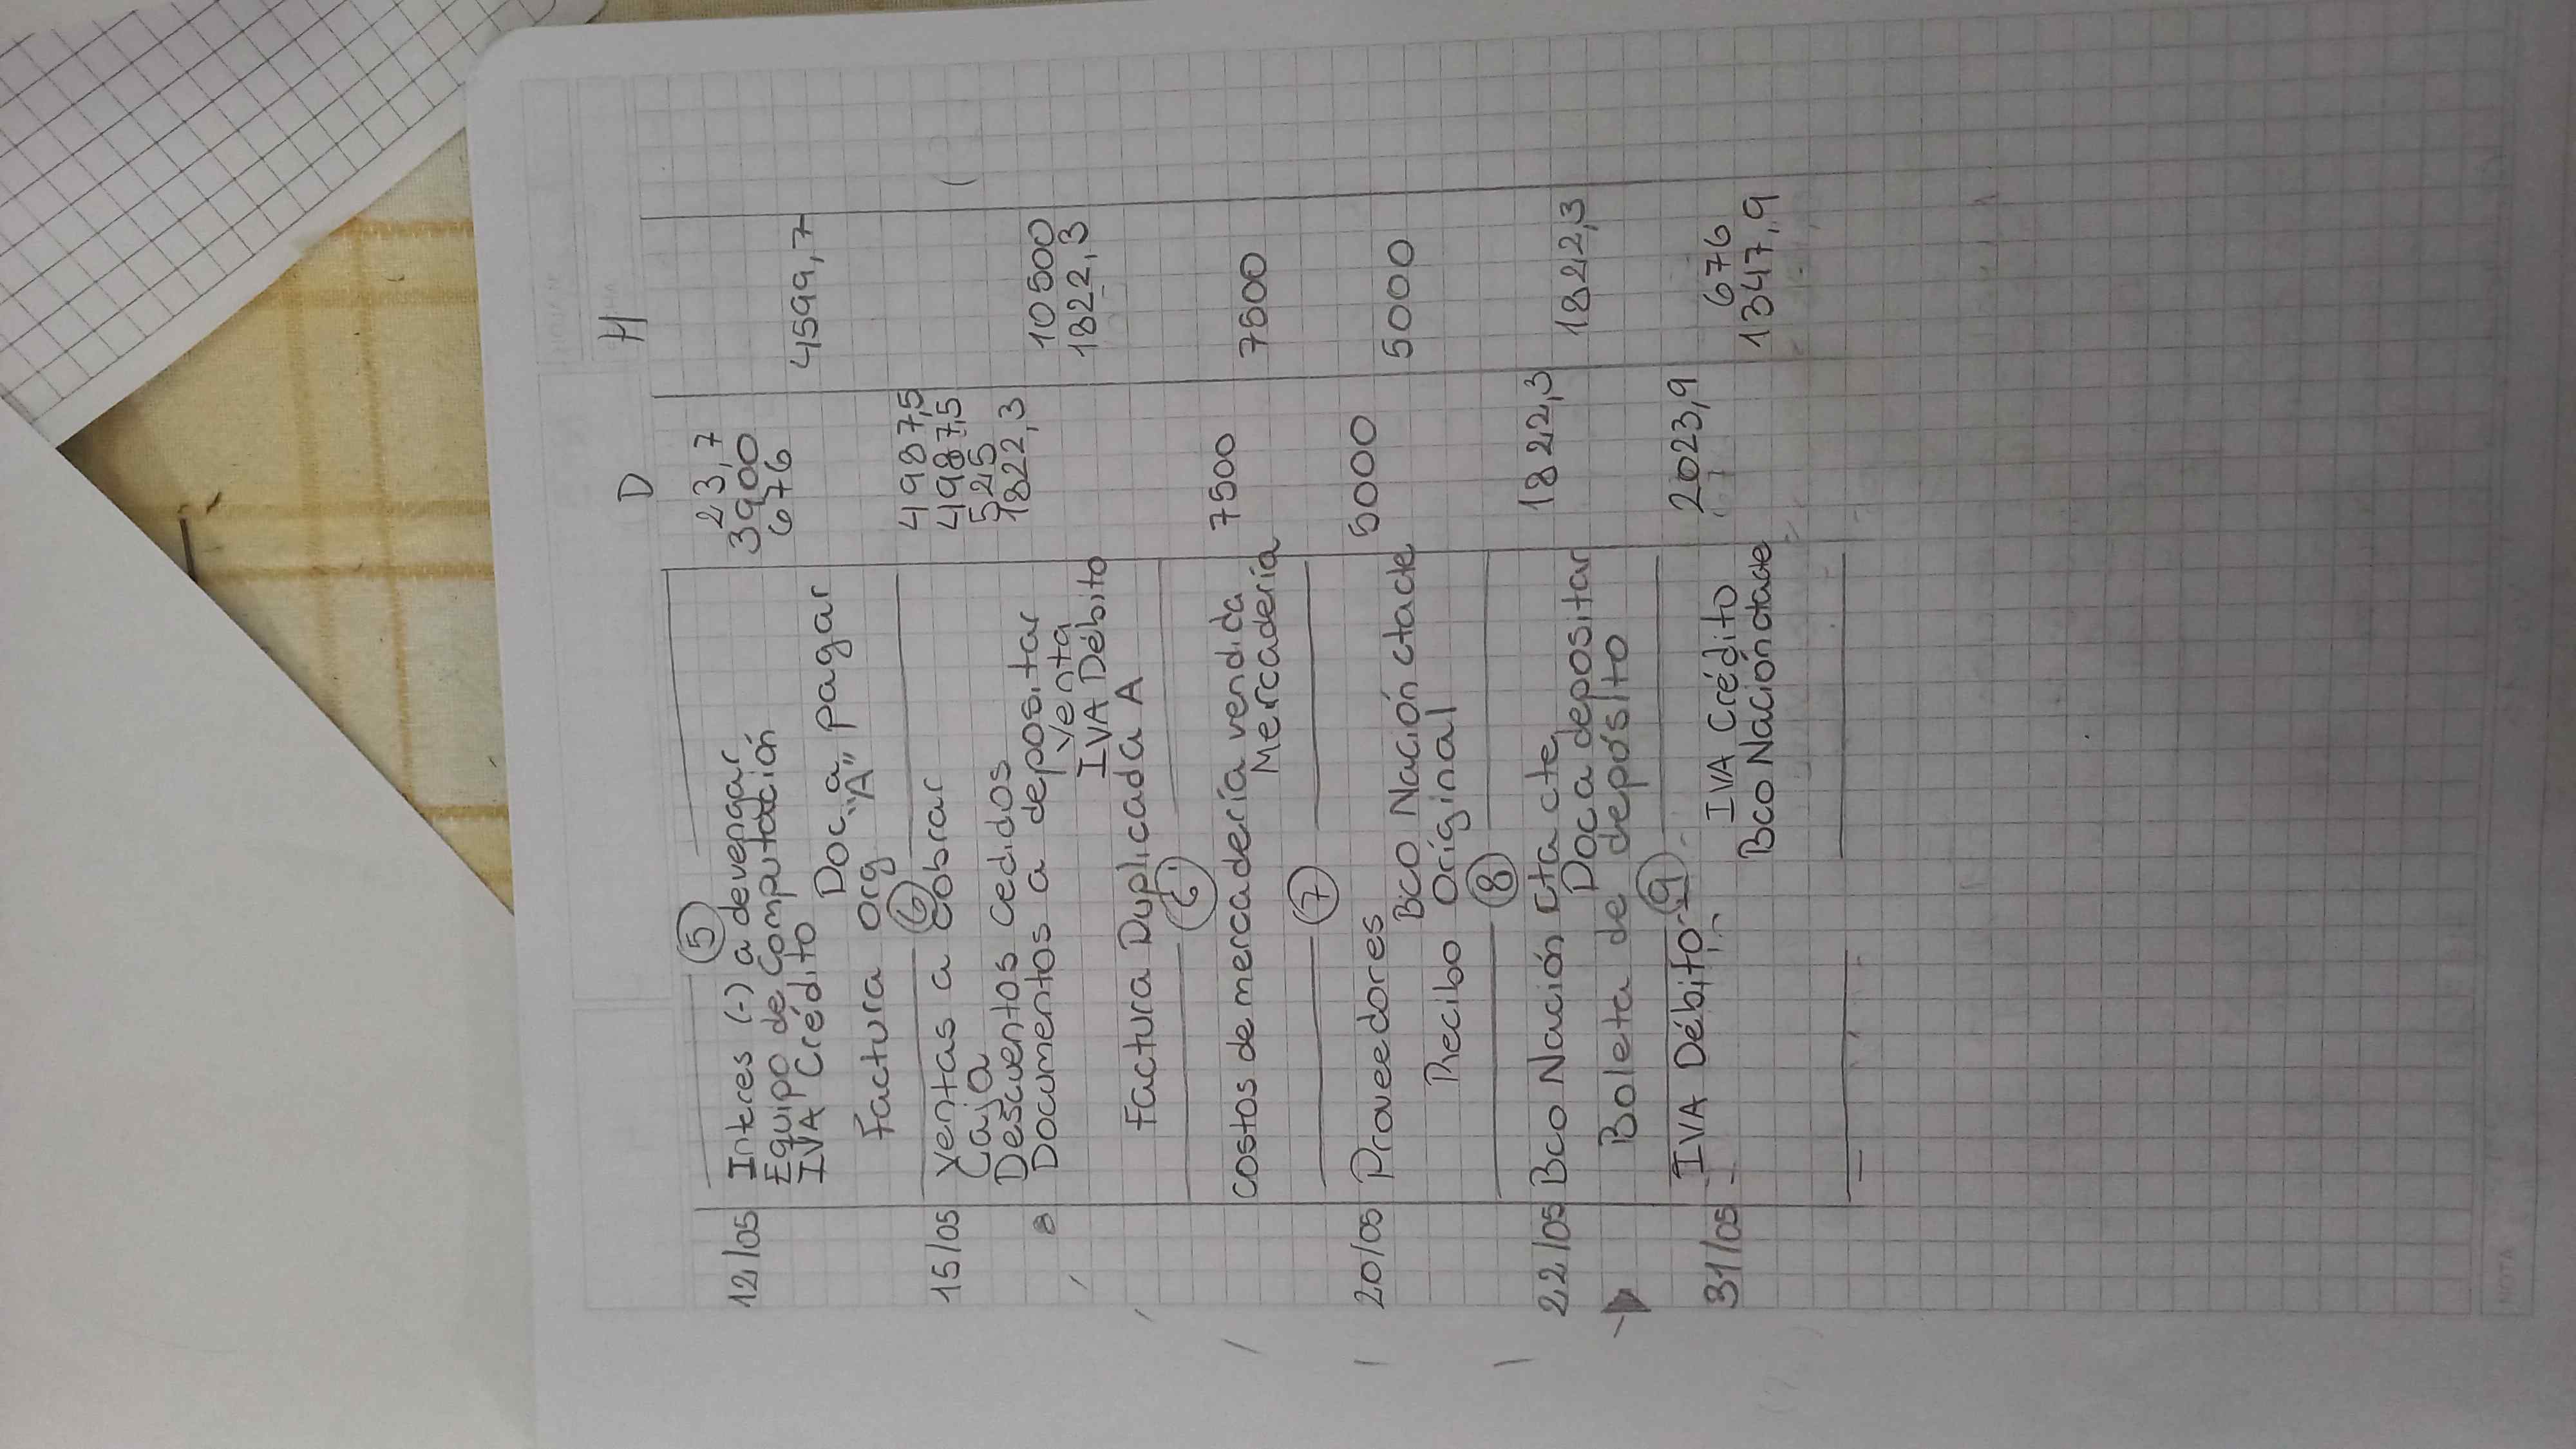 D H
5
12/05 Interes (-) a devengar 23,7
Equipo de Computación 3900
IVA Crédito 676
Doc a pagar 4599,7
Factura org "A"
6
15/05 Ventas a cobrar 4987,5
Caja 4987,5
Descuentos cedidos 525
Documentos a depositar 1822,3
Venta 10500
IVA Débito 1822,3
Factura Duplicada A
6.
costos de mercadería vendida 7500
Mercadería 7500
7
20/05 Proveedores 5000
Bco Nación ctacte 5000
Recibo Original
8
22/05 Bco Nación cta cte 1822,3
Doc a depositar 1822,3
Boleta de depósito
9
31/05 IVA Débito 2023,9
IVA Crédito 676
Bco Nación ctacte 1347,9
NOTA